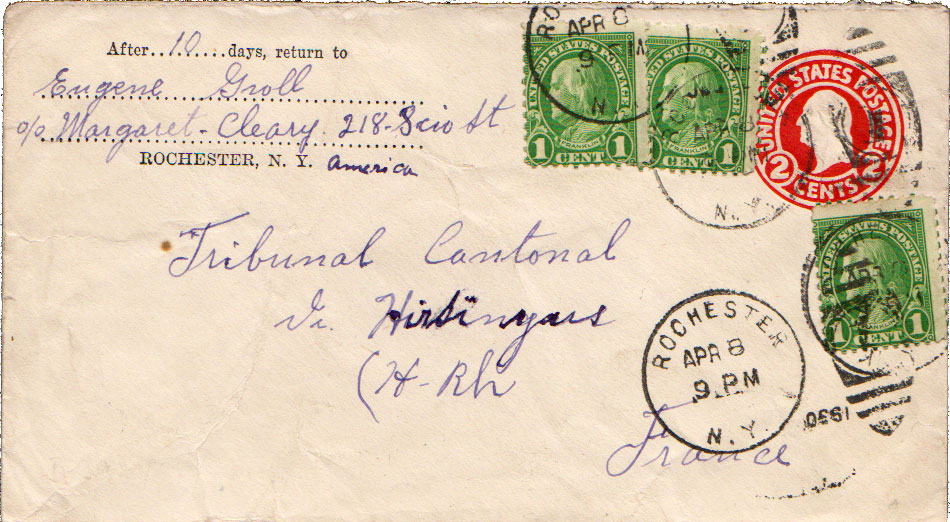 After..10....days, return to
Eugene Groll
c/o Margaret-Cleary 218-Scio St
ROCHESTER, N. Y. America
UNITED STATES POSTAGE
FRANKLIN
1 CENT 1
UNITED STATES POSTAGE
FRANKLIN
1 CENT 1
UNITED STATES POSTAGE
2 CENTS 2
APR 8
9
N.Y.
APR 8
N.Y.
Tribunal Cantonal
UNITED STATES POSTAGE
FRANKLIN
1 CENT 1
(H-Rh
France
ROCHESTER
APR 8
9 PM
N.Y.
1930